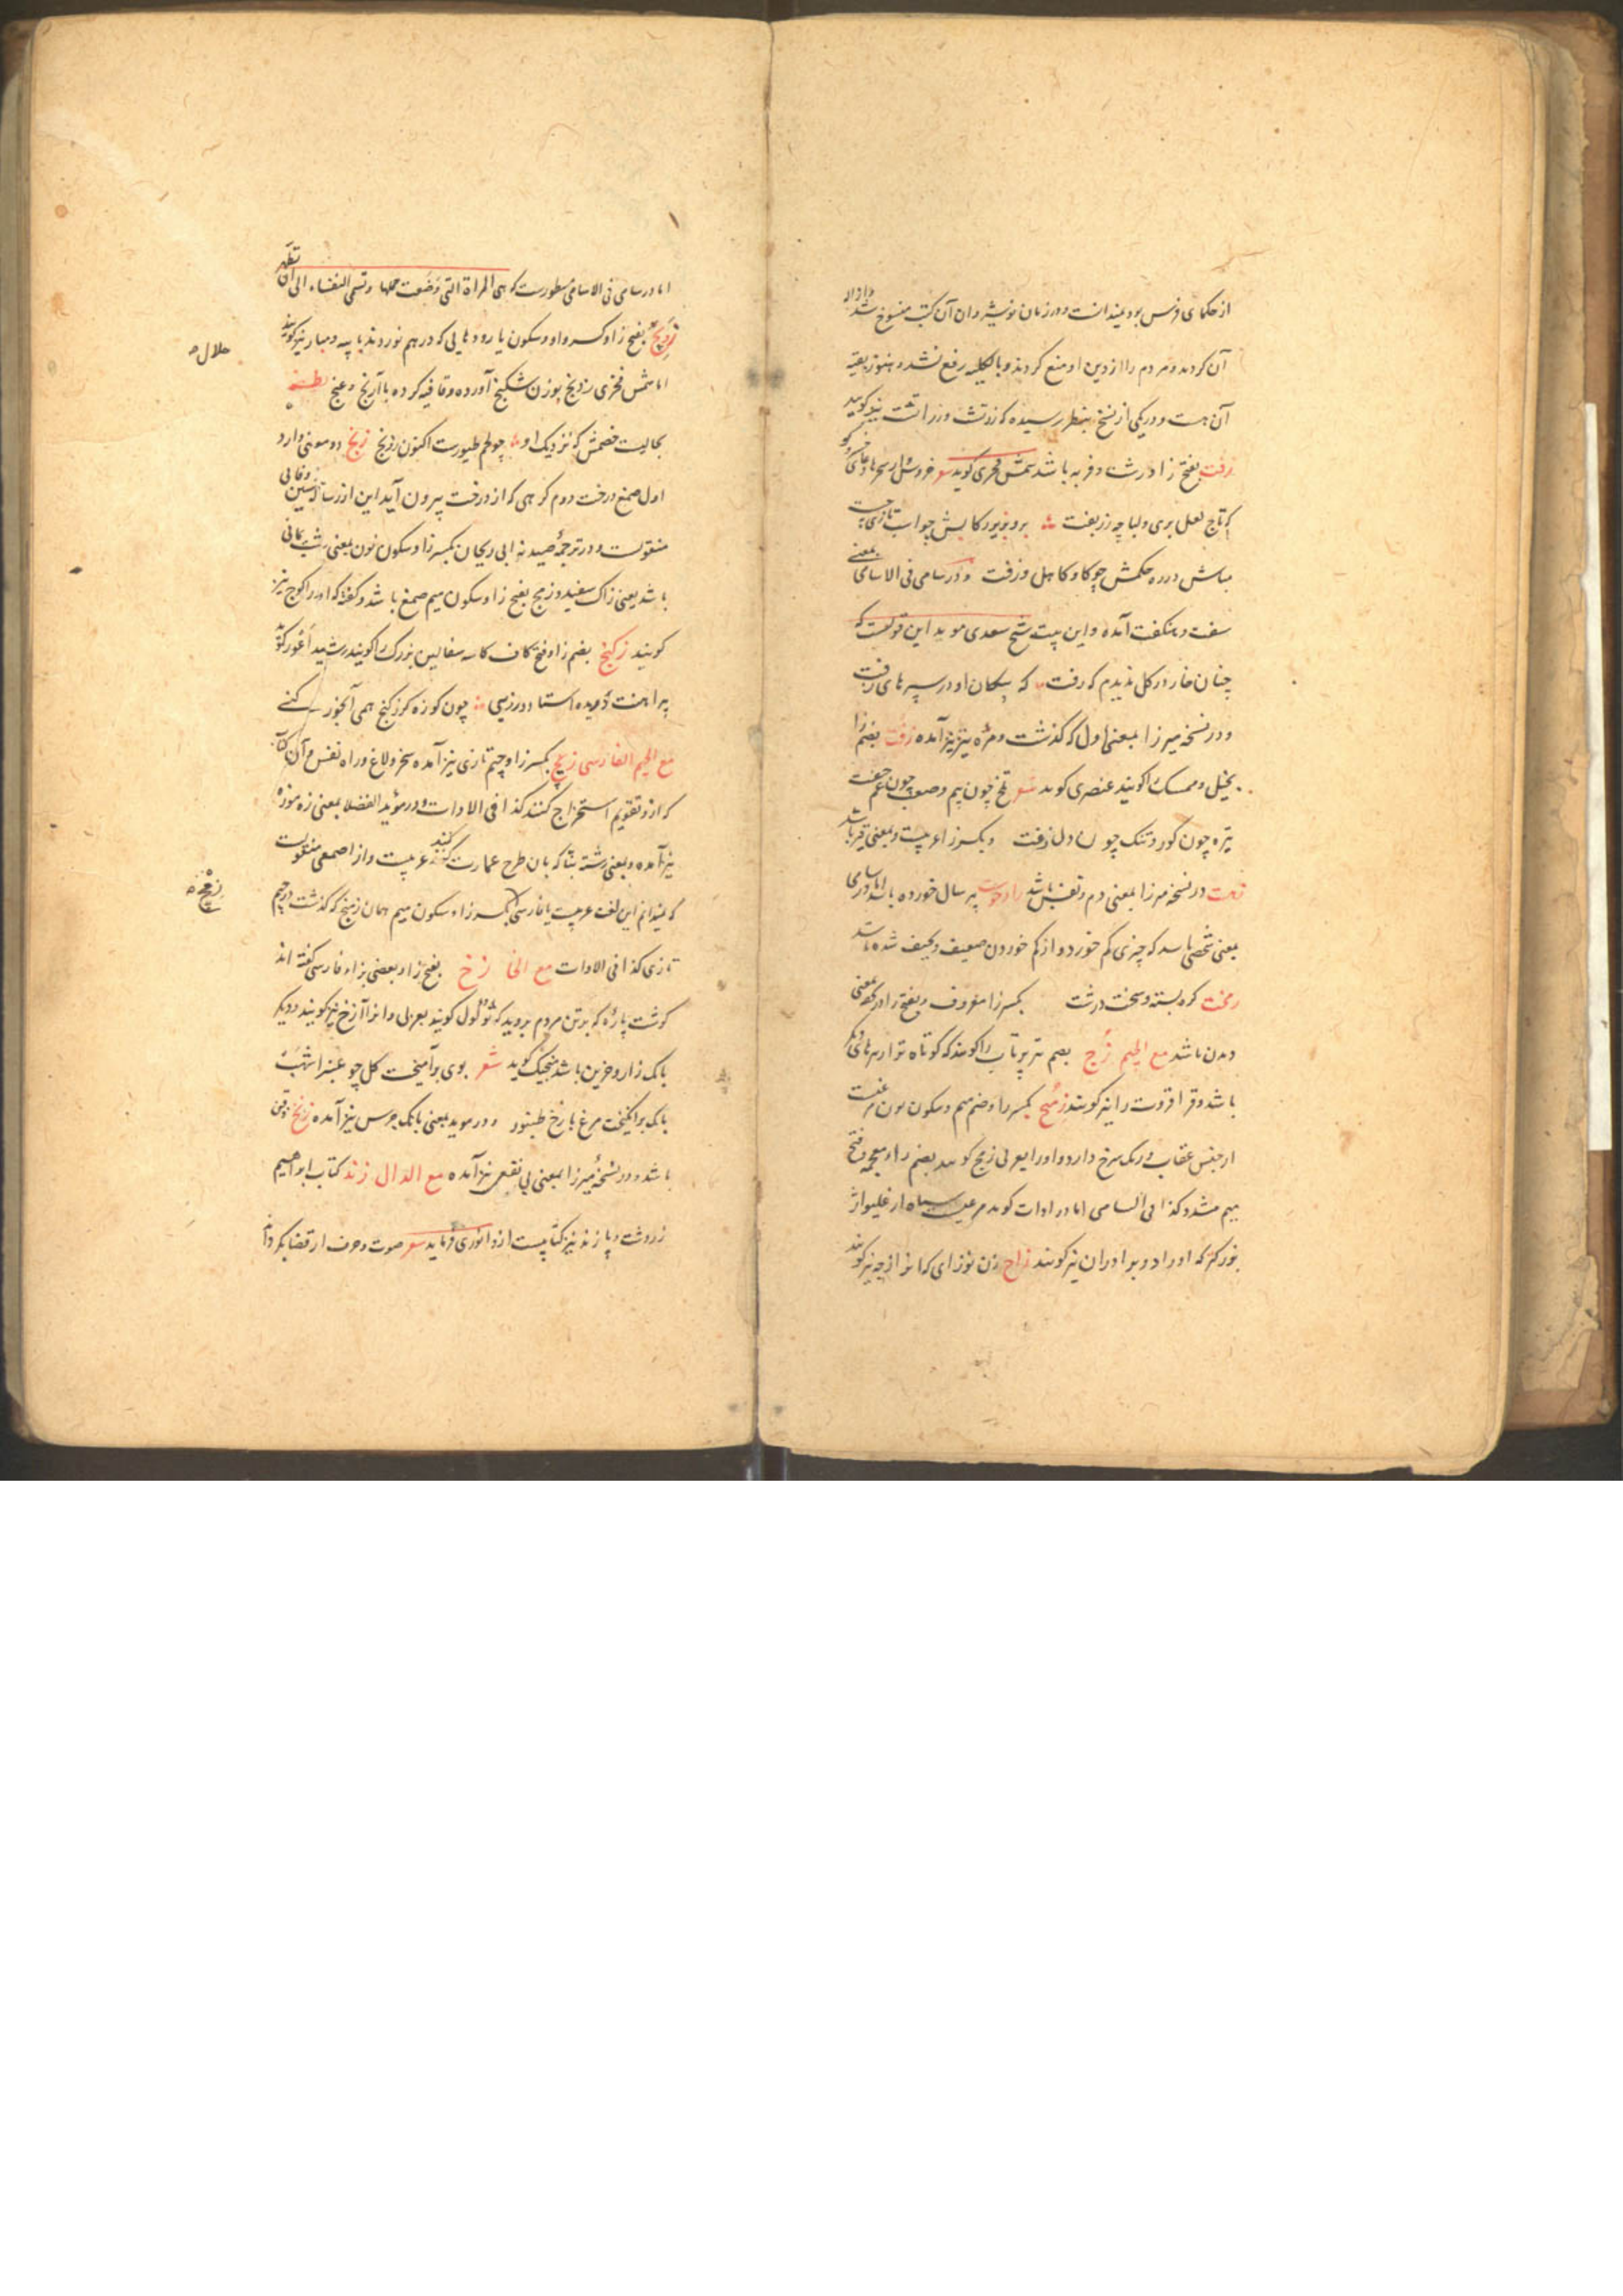 از حکمای فرس بود میدانست و در زمان نوشیروان آن کتب منسوخ شد
آن کردند و مردم را از دین او منع کردند و بالکلیه رفع نشد و هنوز بقیه
آن هست و در یکی از نسخ بنظر رسیده که زرتشت و زراتشت نیز گویند
زفت بفتح زا درشت و فربه باشد شمس فخری گوید
که تاج لعل بری و لباچه زربفت
مباش در ره حکمش چو کا و کاهل و زفت و در سامی فی الاسامی بمعنی
سفت و هنگفت آمده و این بیت شیخ سعدی موید این قولست که
چنان خار در کل ندیدم که رفت که پیکان او در سپرهای زفت
و در نسخه میرزا بمعنی اول که گذشت و مزه تیز نیز آمده زفت بضم زا
بخیل و ممسک را گویند عنصری گوید شعر
تیره چون گور و تنک چون دل زفت و بکسر زا عربیست و بمعنی قیر باشد
در نسخه میرزا بمعنی دم و نفس باشد پیر سال خورده باشد اما در سامی
بمعنی شخصی باشد که چیزی کم خورد و از کم خوردن ضعیف و نحیف شده باشد
زمخت کره بسته و سخت درشت بکسر زا معروف و بفتح زا
مع الجیم زج بضم تیر پرتاب را گویند که کوتاه تر از تیرهای دیگر
باشد و قراقروت را نیز گویند زمج بکسر زا و ضم میم و سکون نون مرغیست
از جنس عقاب و رنک سرخ دارد و او را بعربی زمج گویند بضم زاء معجمه و فتح
میم مشدد کذا فی السامی اما در ادات گوید مرغیست سیاه از غلیواژ
بزرکتر که او را دوبرادران نیز گویند زاج زن نوزای که انرا زچه نیز گویند
اما در سامی فی الاسامی مسطورست که هی المراة التی وضعت حملها و تسمی النفساء الی ان تطهر
زویج بفتح زا و کسر واو و سکون یا رودهایی که در هم نوردند با پیه و مبار نیز گویند
اما شمس فخری زویج بوزن شکنج آورده و قافیه کرده با آرنج و غنج
بحالیست خصمش که نزدیک او چو لحم طیورست اکنون زویج زنج دو معنی دارد
اول صمغ درخت دوم کرهی که از درخت بیرون آید این از رساله حسین وفایی
منقولست و در ترجمهٔ صیدنه ابی ریحان بکسر زا و سکون نون بمعنی شب یمانی
باشد یعنی زاک سفید و زمج بفتح زا و سکون میم صمغ باشد و گفته که او را کوج نیز
گویند زکنج بضم زا و فتح کاف کاسه سفالین بزرک را گویند رشید اعور گوید
پیراهنت دریده استا دورزیی چون کوزه کرز کنج همی آنجوز کنی
مع الجیم الفارسی زیچ بکسر زا و جیم تازی نیز آمده سخر و لاغ و راه نفس و آن کتاب
که ازو تقویم استخراج کنند کذا فی الادات و در مؤید الفضلا بمعنی زه موزه
نیز آمده و بمعنی رشته بنا که بان طرح عمارت کنند عربیست و از اصمعی منقولست
که نمیدانم این لغت عربیست یا فارسی بکسر زاء و سکون میم همان زمنج که گذشت در جیم
تازی کذا فی الادات مع الخا زخ بفتح زا و بعضی بزاء فارسی گفته اند
گوشت پاره که بر تن مردم بروید که ثؤلول گویند بعربی و انرا آزخ نیز گویند و دیگر
بانک زار و حزین باشد منجیک گوید شعر بوی برآمیخت کل چو عنبر اشهب
بانک برانگیخت مرغ با زخ طنبور و در موید بمعنی بانک جرس نیز آمده زنخ ذقن
باشد و در نسخهٔ میرزا بمعنی بی نفعی نیز آمده مع الدال زند کتاب ابراهیم
زردشت و پازند نیز کتابیست ازو انوری فرماید شعر صوت و حرف ار قضا بگرداند